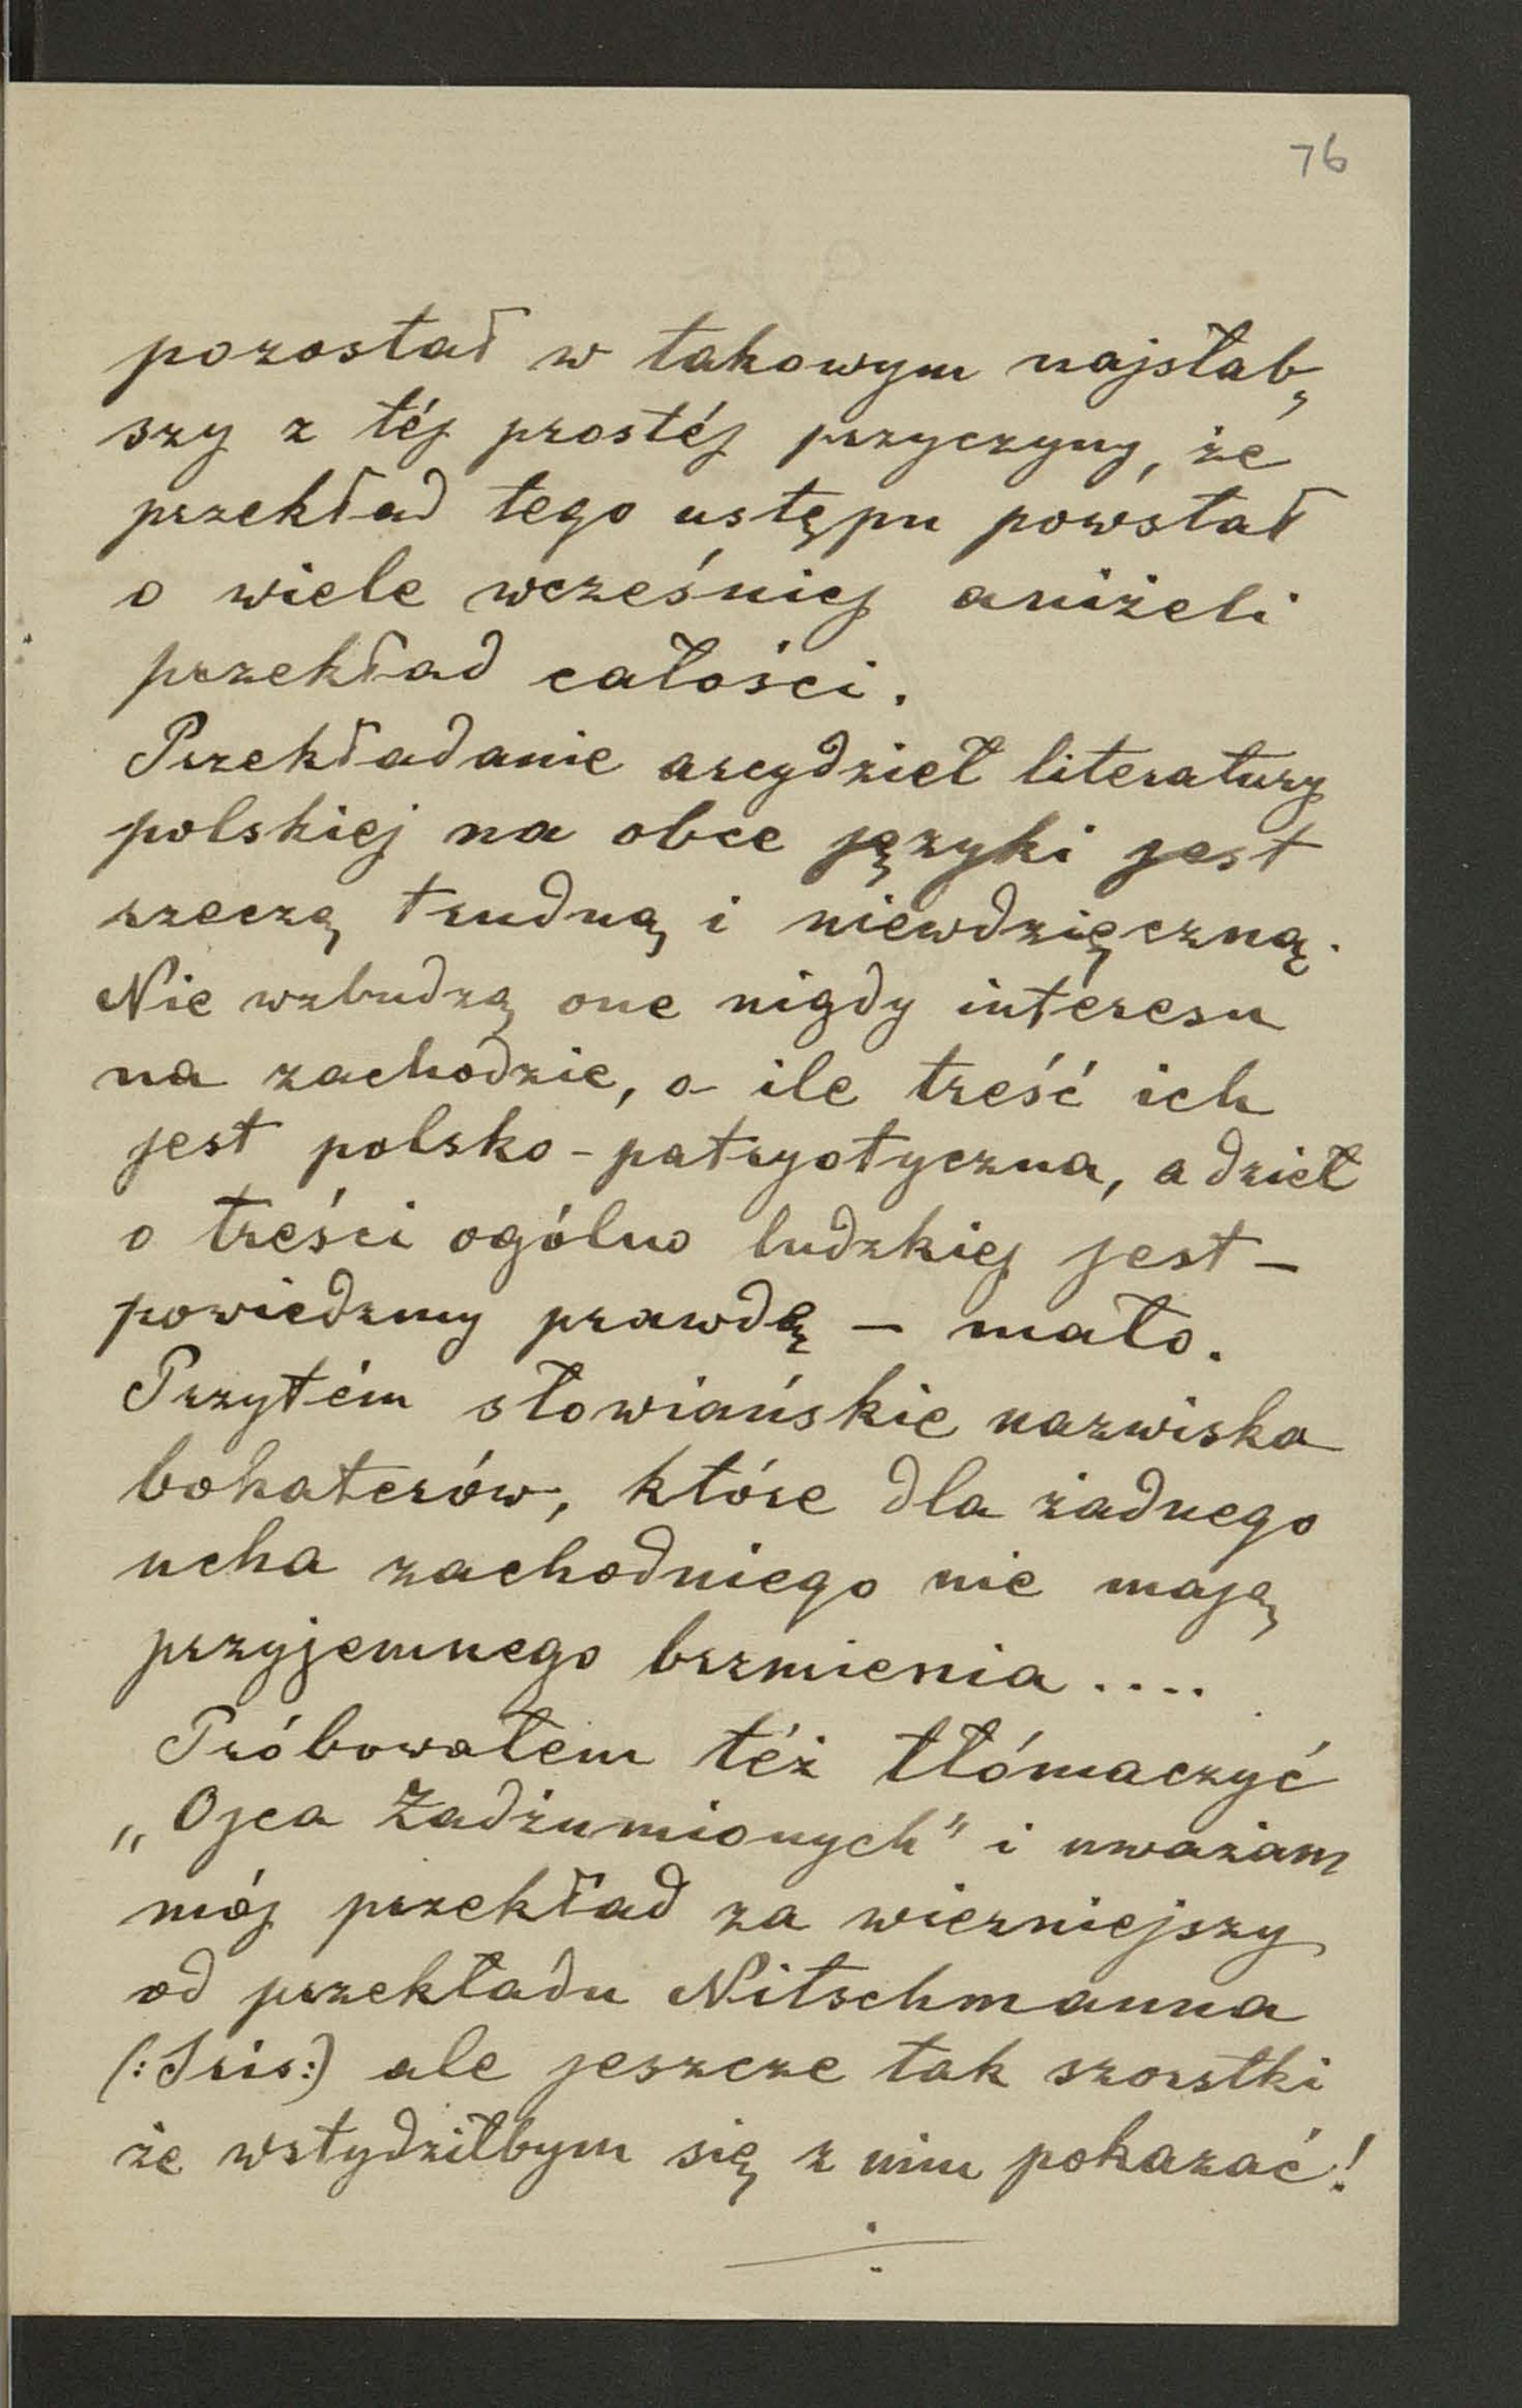 76
pozostał w takowym najsłab„
szy z téj prostéj przyczyny, że
przekład tego ustępu powstał
o wiele wcześniej aniżeli
przekład całości.
Przekładanie arcydzieł literatury
polskiej na obce języki jest
rzeczą trudną i niewdzięczną.
Nie wzbudzą one nigdy interesu
na zachodzie, o ile treść ich
jest polsko-patryotyczna, a dzieł
o treści ogólno ludzkiej jest —
powiedzmy prawdę — mało.
Przytém słowiańskie nazwiska
bohaterów, które dla żadnego
ucha zachodniego nie mają
przyjemnego brzmienia ....
Próbowałem też tłómaczyć
„Ojca Zadżumionych" i uważam
mój przekład za wierniejszy
od przekładu Nitschmanna
(:Iris:) ale jeszcze tak szorstki
że wstydziłbym się z nim pokazać!